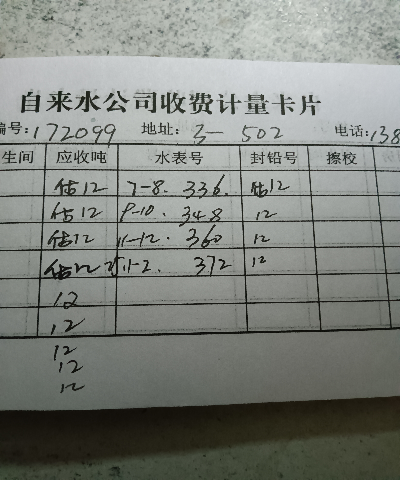 自来水公司收费计量卡片
编号:172099 地址: 3-502 电话:138
生间 应收吨 水表号 封铅号 擦校
估12 7-8. 336. 估12
估12 9-10. 348 12
估12 11-12. 360 12
估12 1-2. 372 12
12
12
12
12
12